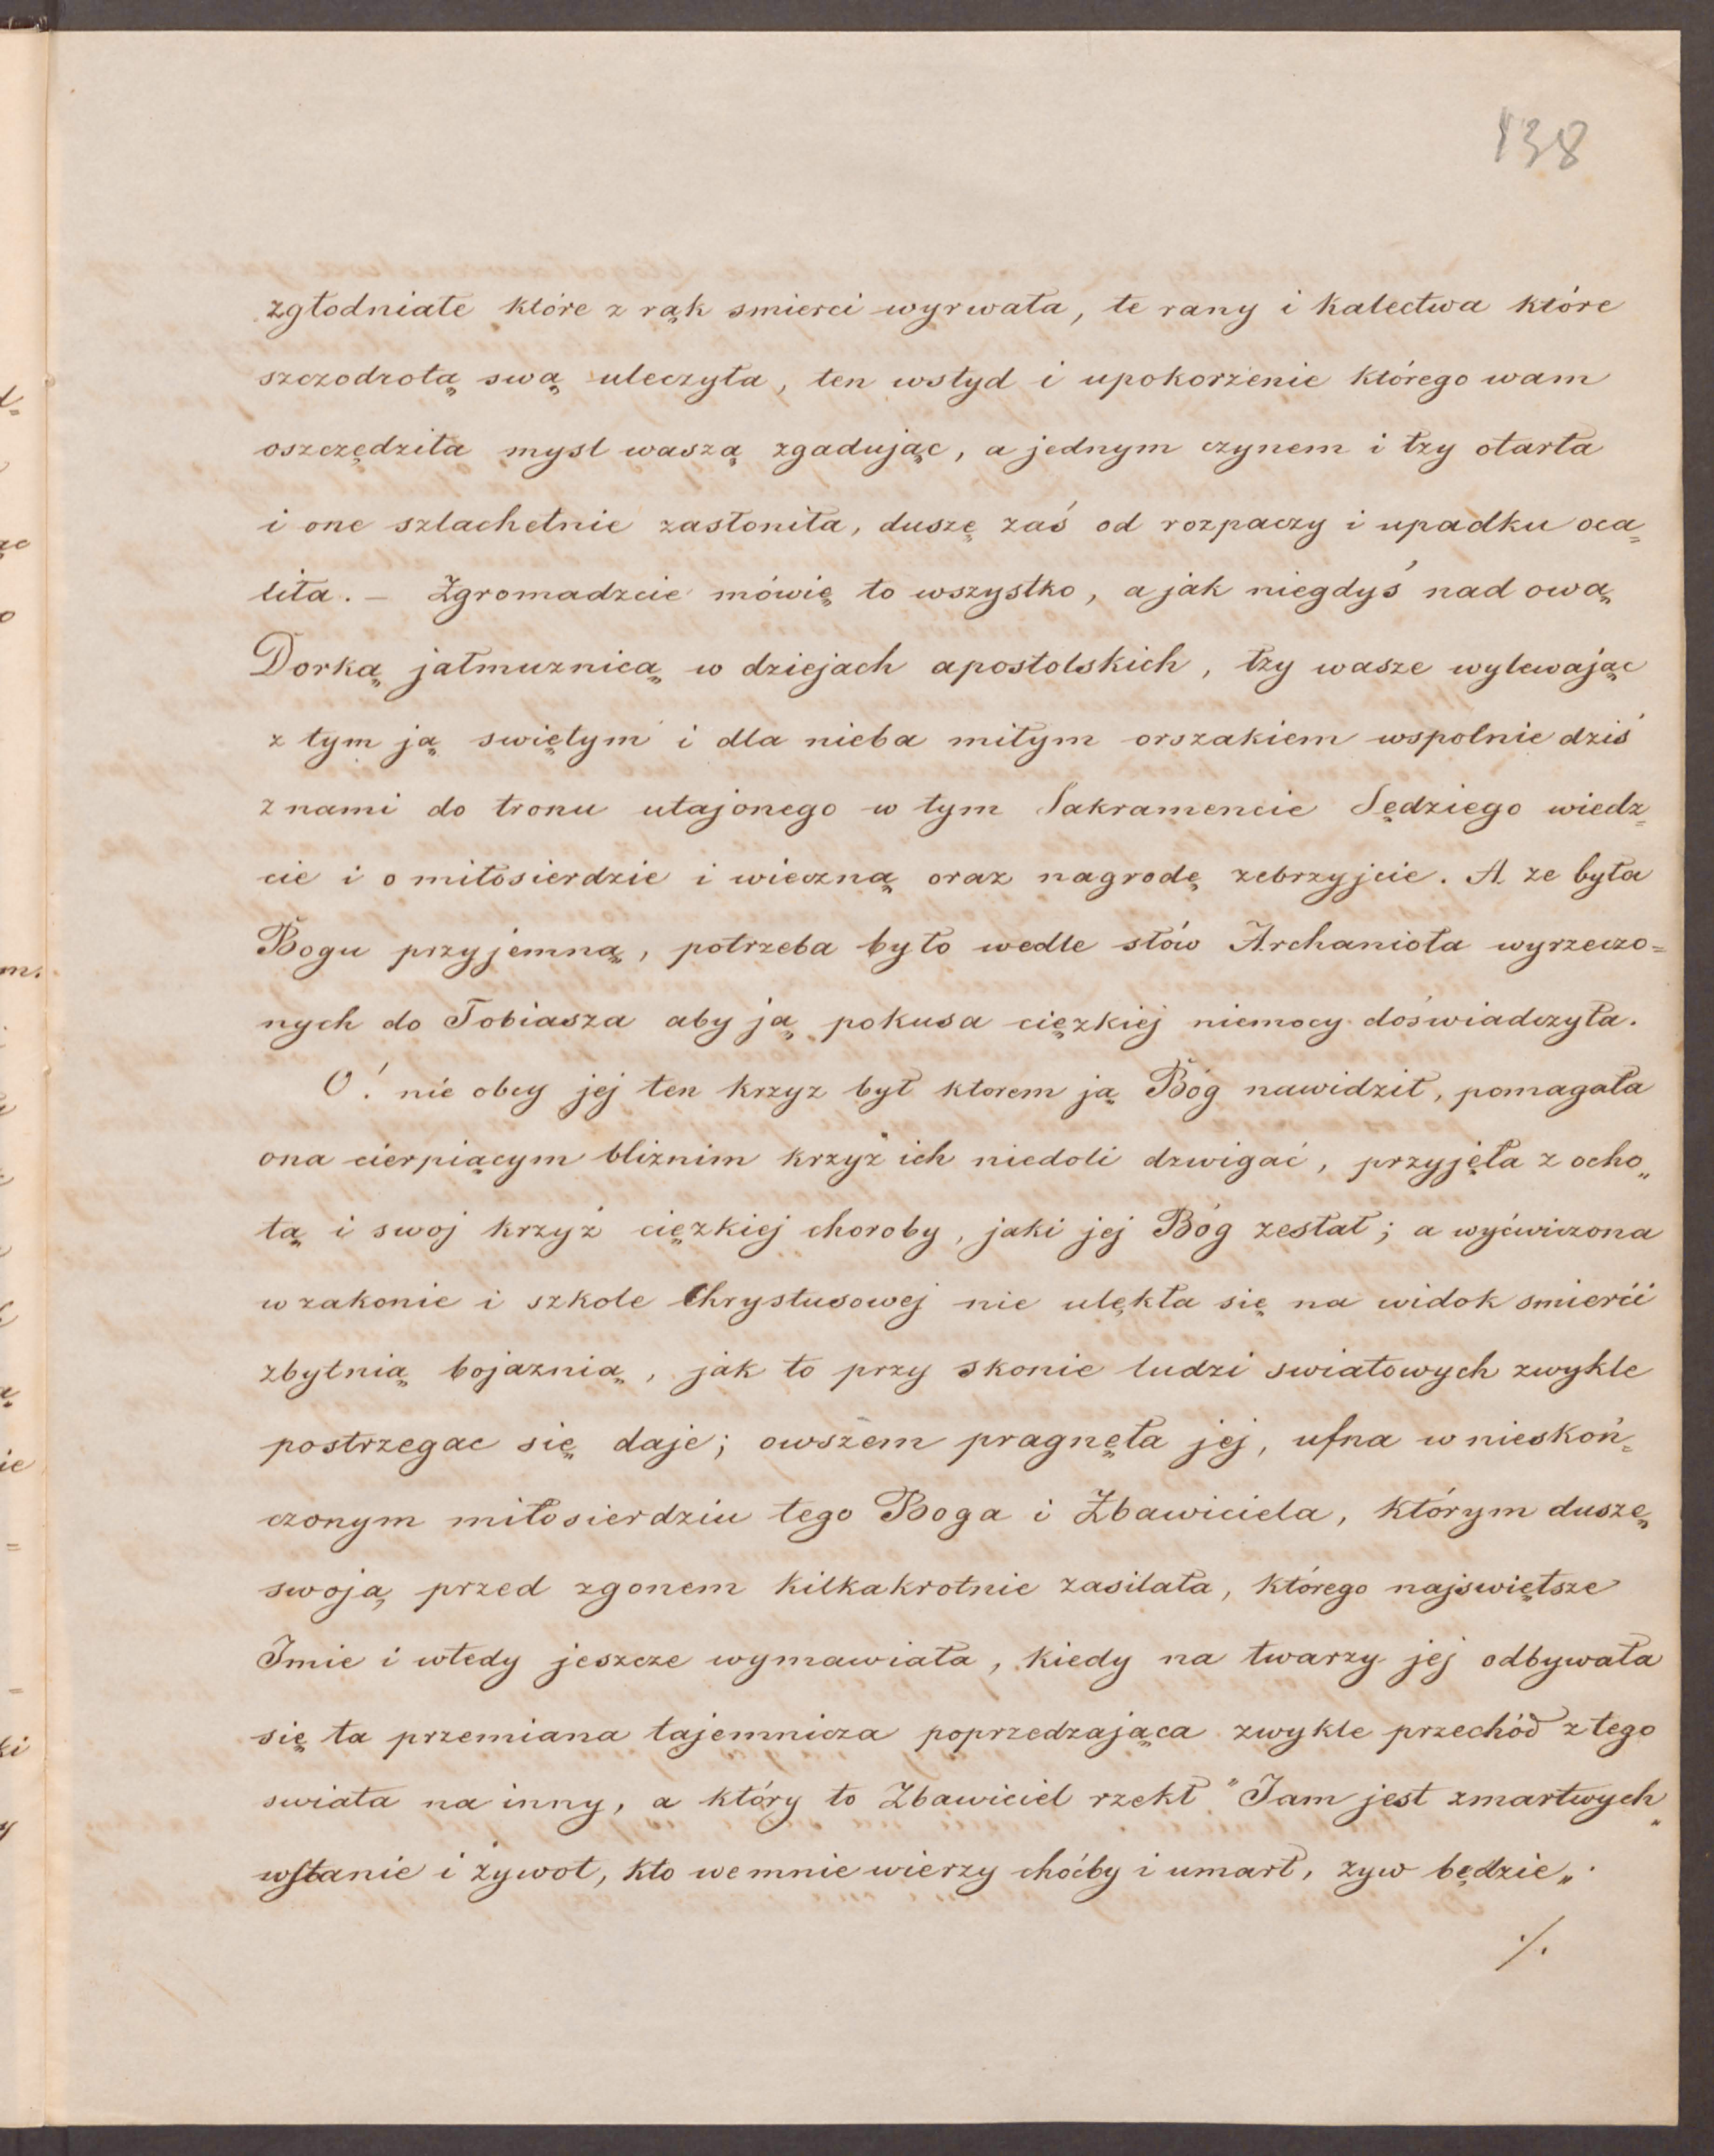 138
zgłodniałe które z rąk smierci wyrwała, te rany i kalectwa które
szczodrotą swą uleczyła, ten wstyd i upokorzenie którego wam
oszczędziła mysl waszą zgadując, a jednym czynem i łzy otarła
i one szlachetnie zasłoniła, duszę zaś od rozpaczy i upadku oca„
liła. – Zgromadzcie mówię to wszystko, a jak niegdyś nad ową
Dorką jałmuznicą w dziejach apostolskich, łzy wasze wylewając
z tym ją swiętym i dla nieba miłym orszakiem wspolnie dziś
z nami do tronu utajonego w tym Sakramencie Sędziego wiedz„
cie i o miłosierdzie i wieczną oraz nagrodę zebrzyjcie. A ze była
Bogu przyjemną, potrzeba było wedle słów Archanioła wyrzeczo=
nych do Tobiasza aby ją pokusa cięzkiej niemocy doświadczyła.
O! nie obcy jej ten krzyz był ktorem ją Bóg nawidził, pomagała
ona cierpiącym bliznim krzyż ich niedoli dzwigać, przyjęła z ocho„
tą i swoj krzyż cięzkiej choroby, jaki jej Bóg zesłał; a wyćwiczona
w zakonie i szkole Chrystusowej nie ulękła się na widok smierći
zbytnią bojaznią, jak to przy skonie ludzi swiatowych zwykle
postrzegac się daje; owszem pragnęła jej, ufna w nieskoń„
czonym miłosierdziu tego Boga i Zbawiciela, którym duszę
swoją przed zgonem kilkakrotnie zasilała, którego najswiętsze
Imie i wtedy jeszcze wymawiała, kiedy na twarzy jej odbywała
się ta przemiana tajemnicza poprzedzająca zwykle przechód z tego
swiata na inny, a który to Zbawiciel rzekł "Jam jest zmartwych„
wstanie i żywot, kto we mnie wierzy choćby i umarł, zyw będzie„.
./.